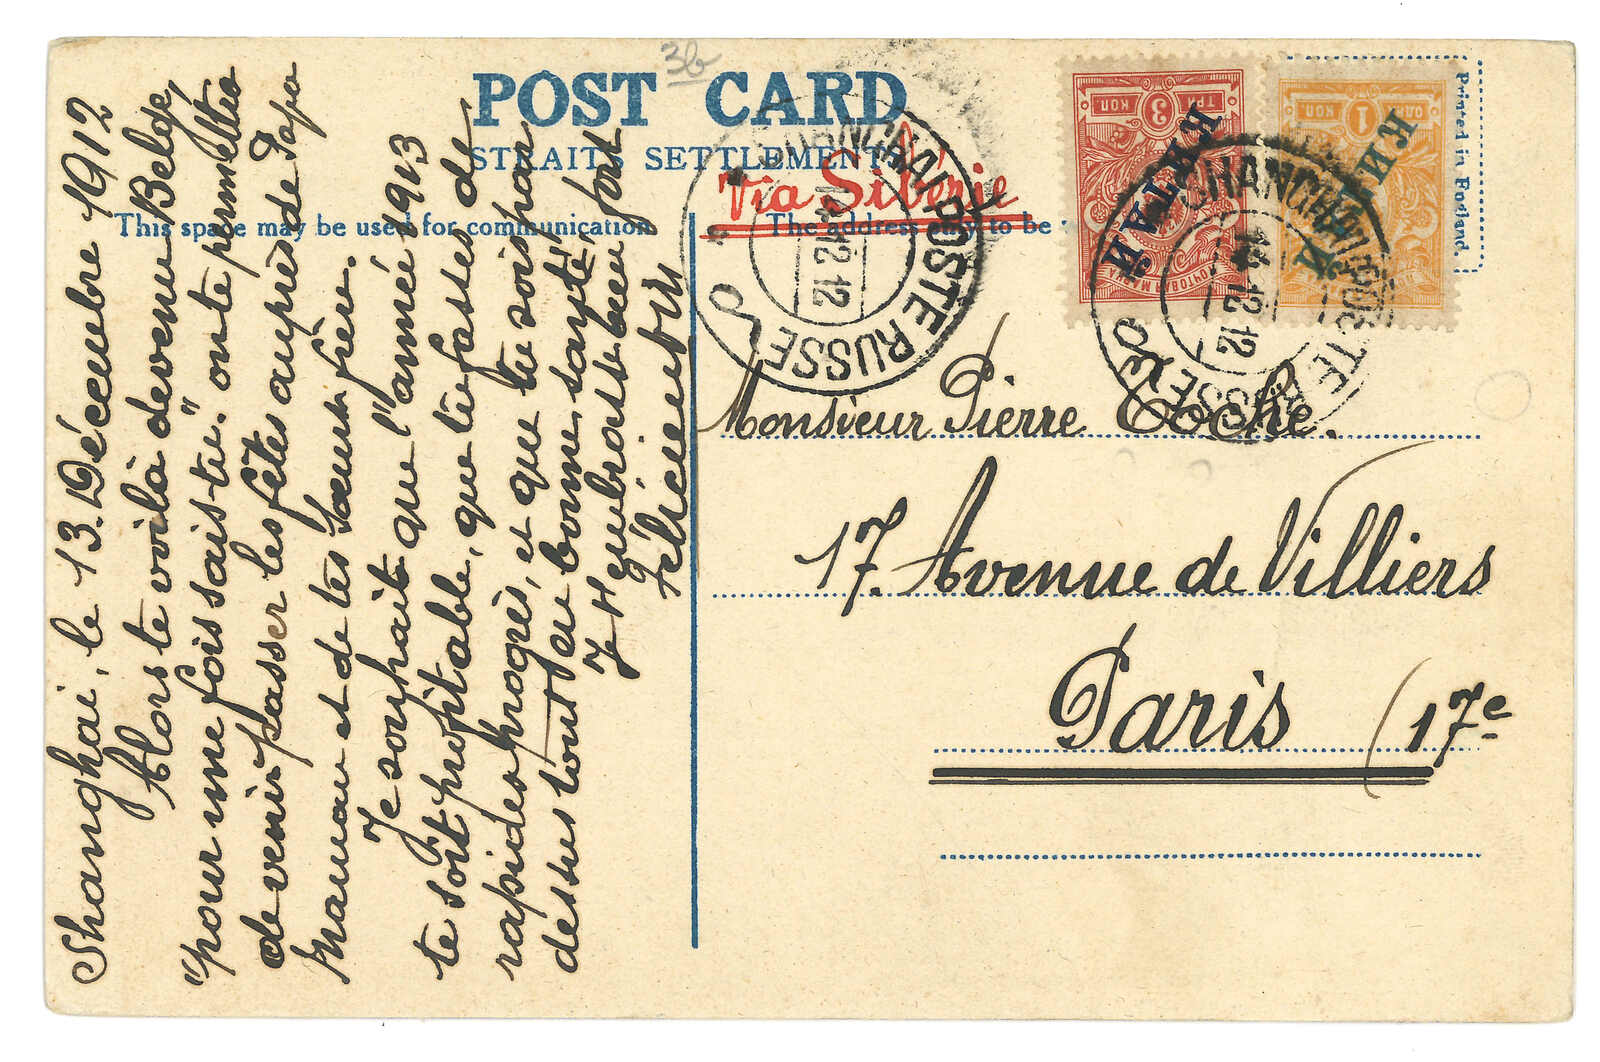 3b
POST CARD
STRAITS SETTLEMENTS.
Via Sibérie
This space may be used for communication
The address only to be
Printed in England.
ТРИ 3 КОП
КИТАЙ
ПОЧТОВАЯ МАРКА
1 КОП
КИТАЙ
SHANGHAI POSTE RUSSE
14 12 12
SHANGHAI POSTE RUSSE
14 12 12
Shanghai, le 13. Décembre 1912
Alors te voilà devenu Belge,
"pour une fois sais tu". on te permettra
de venir passer les fêtes auprès de Papa
Maman et de tes sœur & frère.
Je souhaite que l'année 1913
te soit profitable, que tu fasses de
rapides progrès, et que tu sois par
dessus tout en bonne santé,
Je t'embrasse bien fort
Félicien
Monsieur Pierre Coche.
17. Avenue de Villiers
Paris (17e